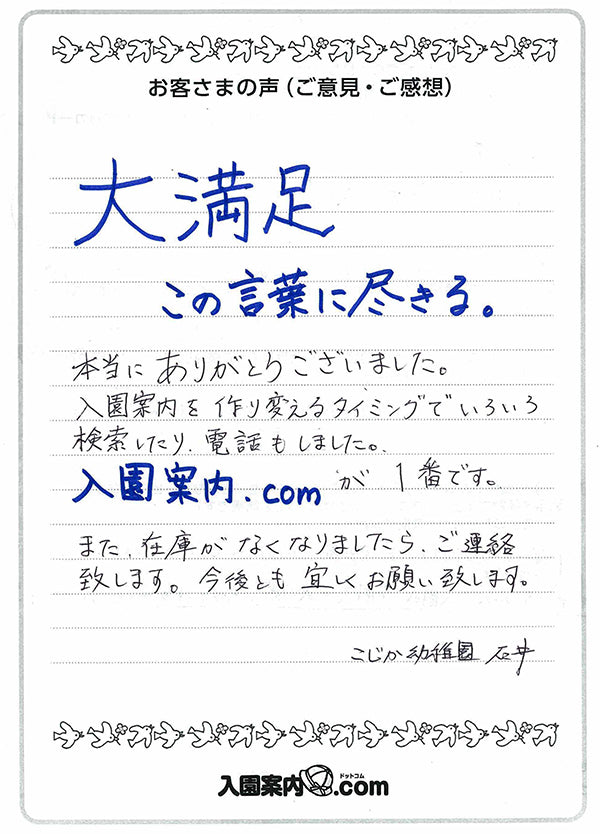 お客さまの声（ご意見・ご感想）
大満足
この言葉に尽きる。
本当にありがとうございました。
入園案内を作り変えるタイミングでいろいろ
検索したり、電話もしました。
入園案内.comが1番です。
また、在庫がなくなりましたら、ご連絡
致します。今後とも宜しくお願い致します。
こじか幼稚園 石井
ドットコム
入園案内.com